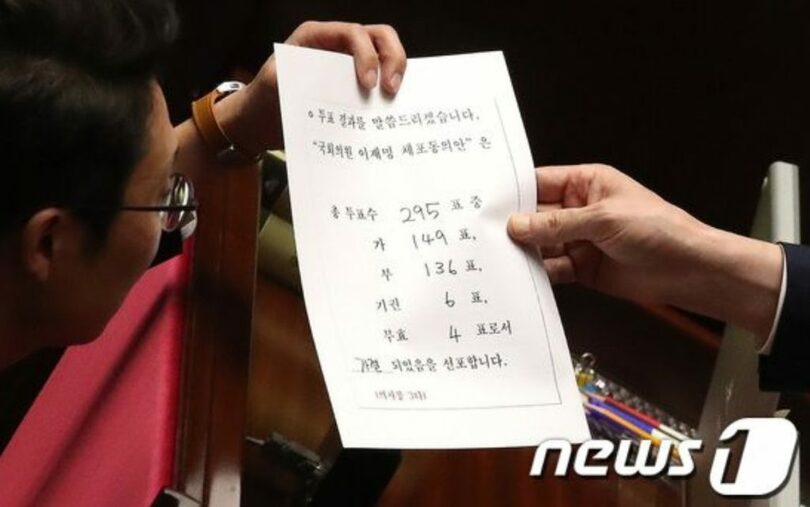 o 투표 결과를 말씀드리겠습니다.
"국회의원 이재명 체포동의안" 은
총 투표수 295 표 중
가 149 표,
부 136 표,
기권 6 표,
무효 4 표로서
가결 되었음을 선포합니다.
(의사봉 3타)
news1